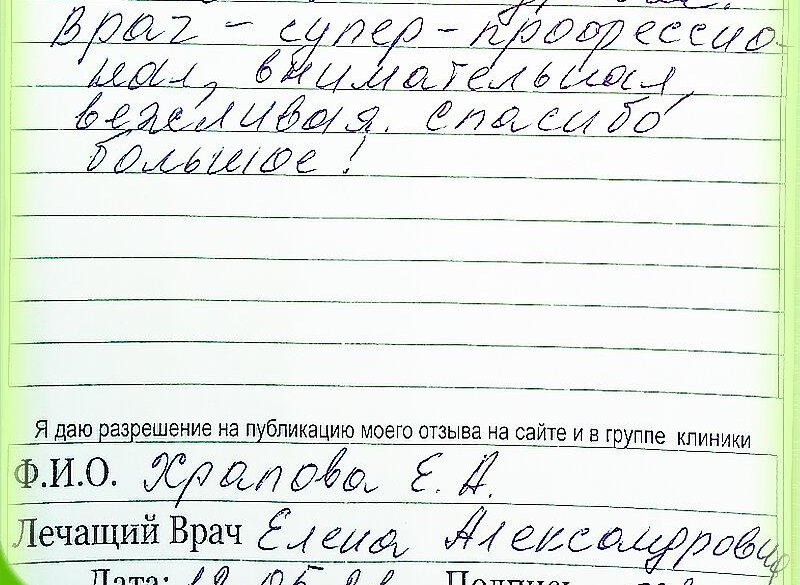 Врач - супер-профессио-
нал, внимательная,
вежливая. Спасибо
большое!
Я даю разрешение на публикацию моего отзыва на сайте и в группе клиники
Ф.И.О. Храпова Е. А.
Лечащий Врач Елена Александровна
Дата: 12.05.21 Подпись